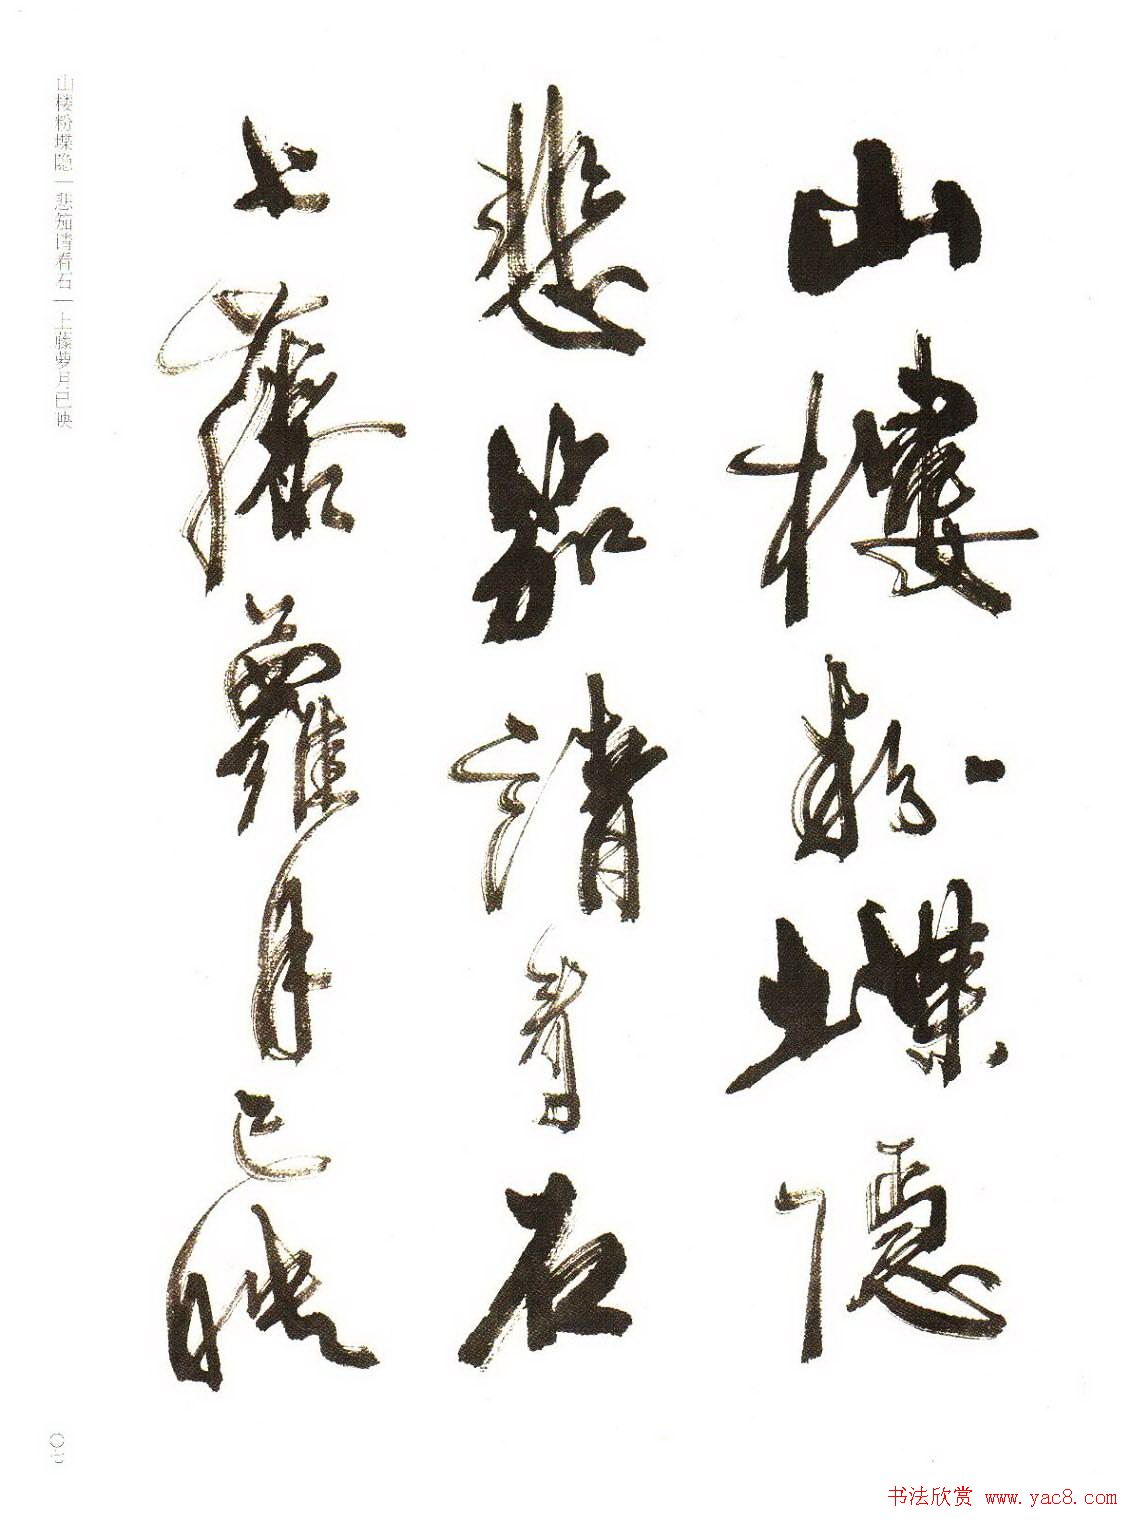 山樓粉堞隱
悲笳請看石
上藤蘿月已映
山楼粉堞隐|悲笳请看石|上藤萝月已映
〇七
书法欣赏 www.yac8.com